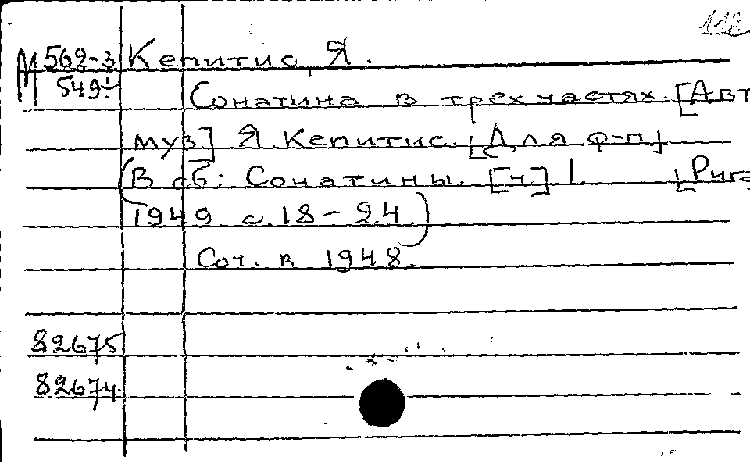 М 562-3 Кепитис, Я.
549
Сонатина в трех частях. [Авт
муз] Я. Кепитис. [Для ф-п]
(В сб: Сонатины. [ч.] 1. [Рига
1949 с. 18-24)
Соч. в 1948.
82675
82674